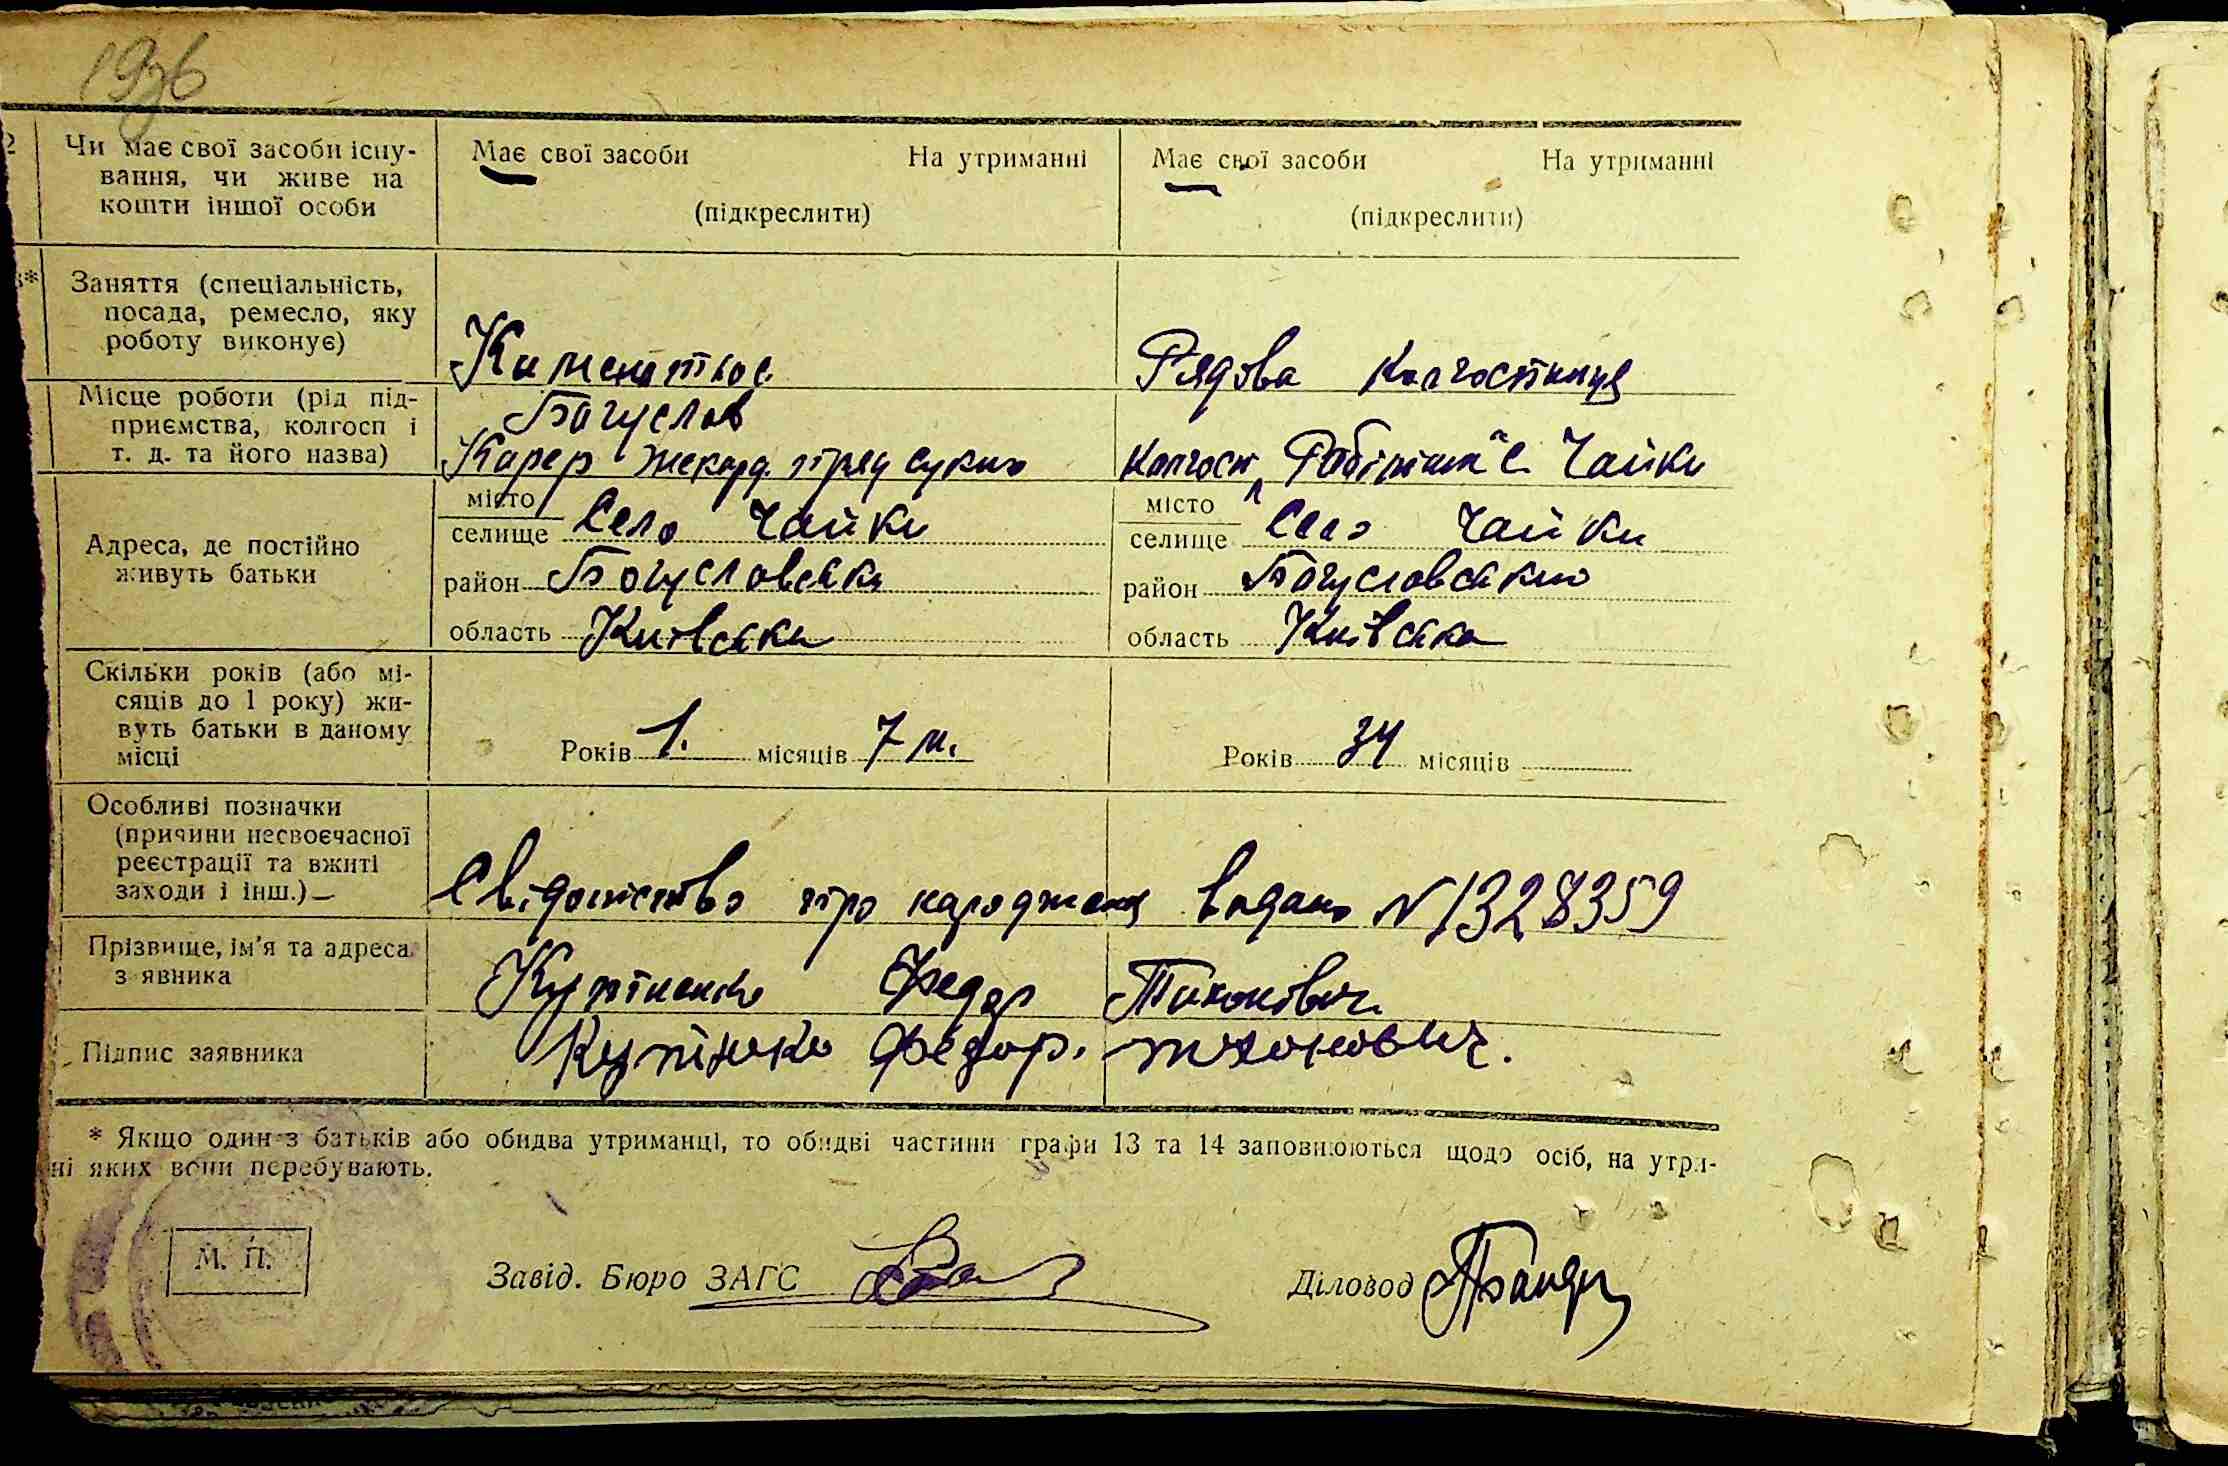 1936
Чи має свої засоби існу-
вання, чи живе на
кошти іншої особи
Має свої засоби На утриманні
(підкреслити)
Має свої засоби На утриманні
(підкреслити)
Заняття (спеціальність,
посада, ремесло, яку
роботу виконує)
Рядова колгостниця
Місце роботи (рід під-
приємства, колгосп і
т. д. та його назва)
Богуслав
Карер
Колгосп „Робітник" с. Чайки
Адреса, де постійно
живуть батьки
місто
селище Село Чайки
район Богуславська
область Київська
місто
селище Село Чайки
район Богуславський
область Київська
Скільки років (або мі-
сяців до 1 року) жи-
вуть батьки в даному
місці
Років 1. місяців 7 м.
Років 34 місяців
Особливі позначки
(причини несвоєчасної
реєстрації та вжиті
заходи і інш.)
Свідоцтво про народження видано N 1328359
Прізвище, ім'я та адреса
заявника
Федор Тихонович
Підпис заявника
Федор. Тихонович.
* Якщо один з батьків або обидва утриманці, то обидві частини графи 13 та 14 заповнюються щодо осіб, на утри-
ні яких вони перебувають.
М. П.
Завід. Бюро ЗАГС
Діловод